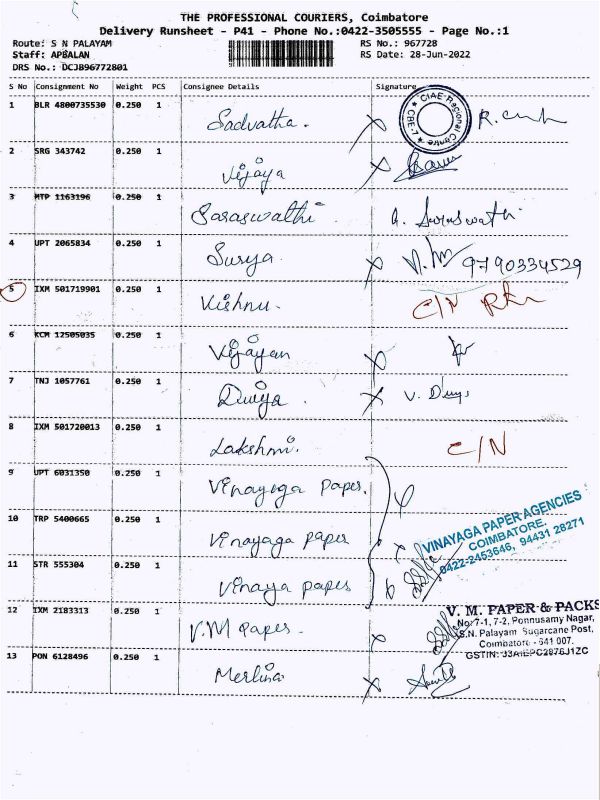 THE PROFESSIONAL COURIERS, Coimbatore
Delivery Runsheet - P41 - Phone No.:0422-3505555 - Page No.:1
Route: S N PALAYAM
Staff: APBALAN
DRS No.: DCJB96772801
RS No.: 967728
RS Date: 28-Jun-2022
S No Consignment No Weight PCS Consignee Details Signature
1 BLR 4800735530 0.250 1 Sadvatha.
CIAE Regional Centre CBE-7
2 SRG 343742 0.250 1 Vijaya
3 MTP 1163196 0.250 1 Saraswathi A. Saraswathi
4 UPT 2065834 0.250 1 Surya. 9790334529
5 IXM 501719901 0.250 1 Vishnu. C/N
6 KCM 12505035 0.250 1 Vijayan
7 TNJ 1057761 0.250 1 Divya. V. Divya
8 IXM 501720013 0.250 1 Lakshmi. C/N
9 UPT 6031350 0.250 1 Vinayaga papes.
10 TRP 5400665 0.250 1 Vinayaga papes
VINAYAGA PAPER AGENCIES
COIMBATORE.
0422-2453646, 94431 28271
11 STR 555304 0.250 1 Vinaya papes 6
12 IXM 2183313 0.250 1 V.M papes.
V. M. PAPER & PACKS
No: 7-1, 7-2, Ponnusamy Nagar,
S.N. Palayam Sugarcane Post,
Coimbatore - 641 007.
GSTIN:
13 PON 6128496 0.250 1 Merlina